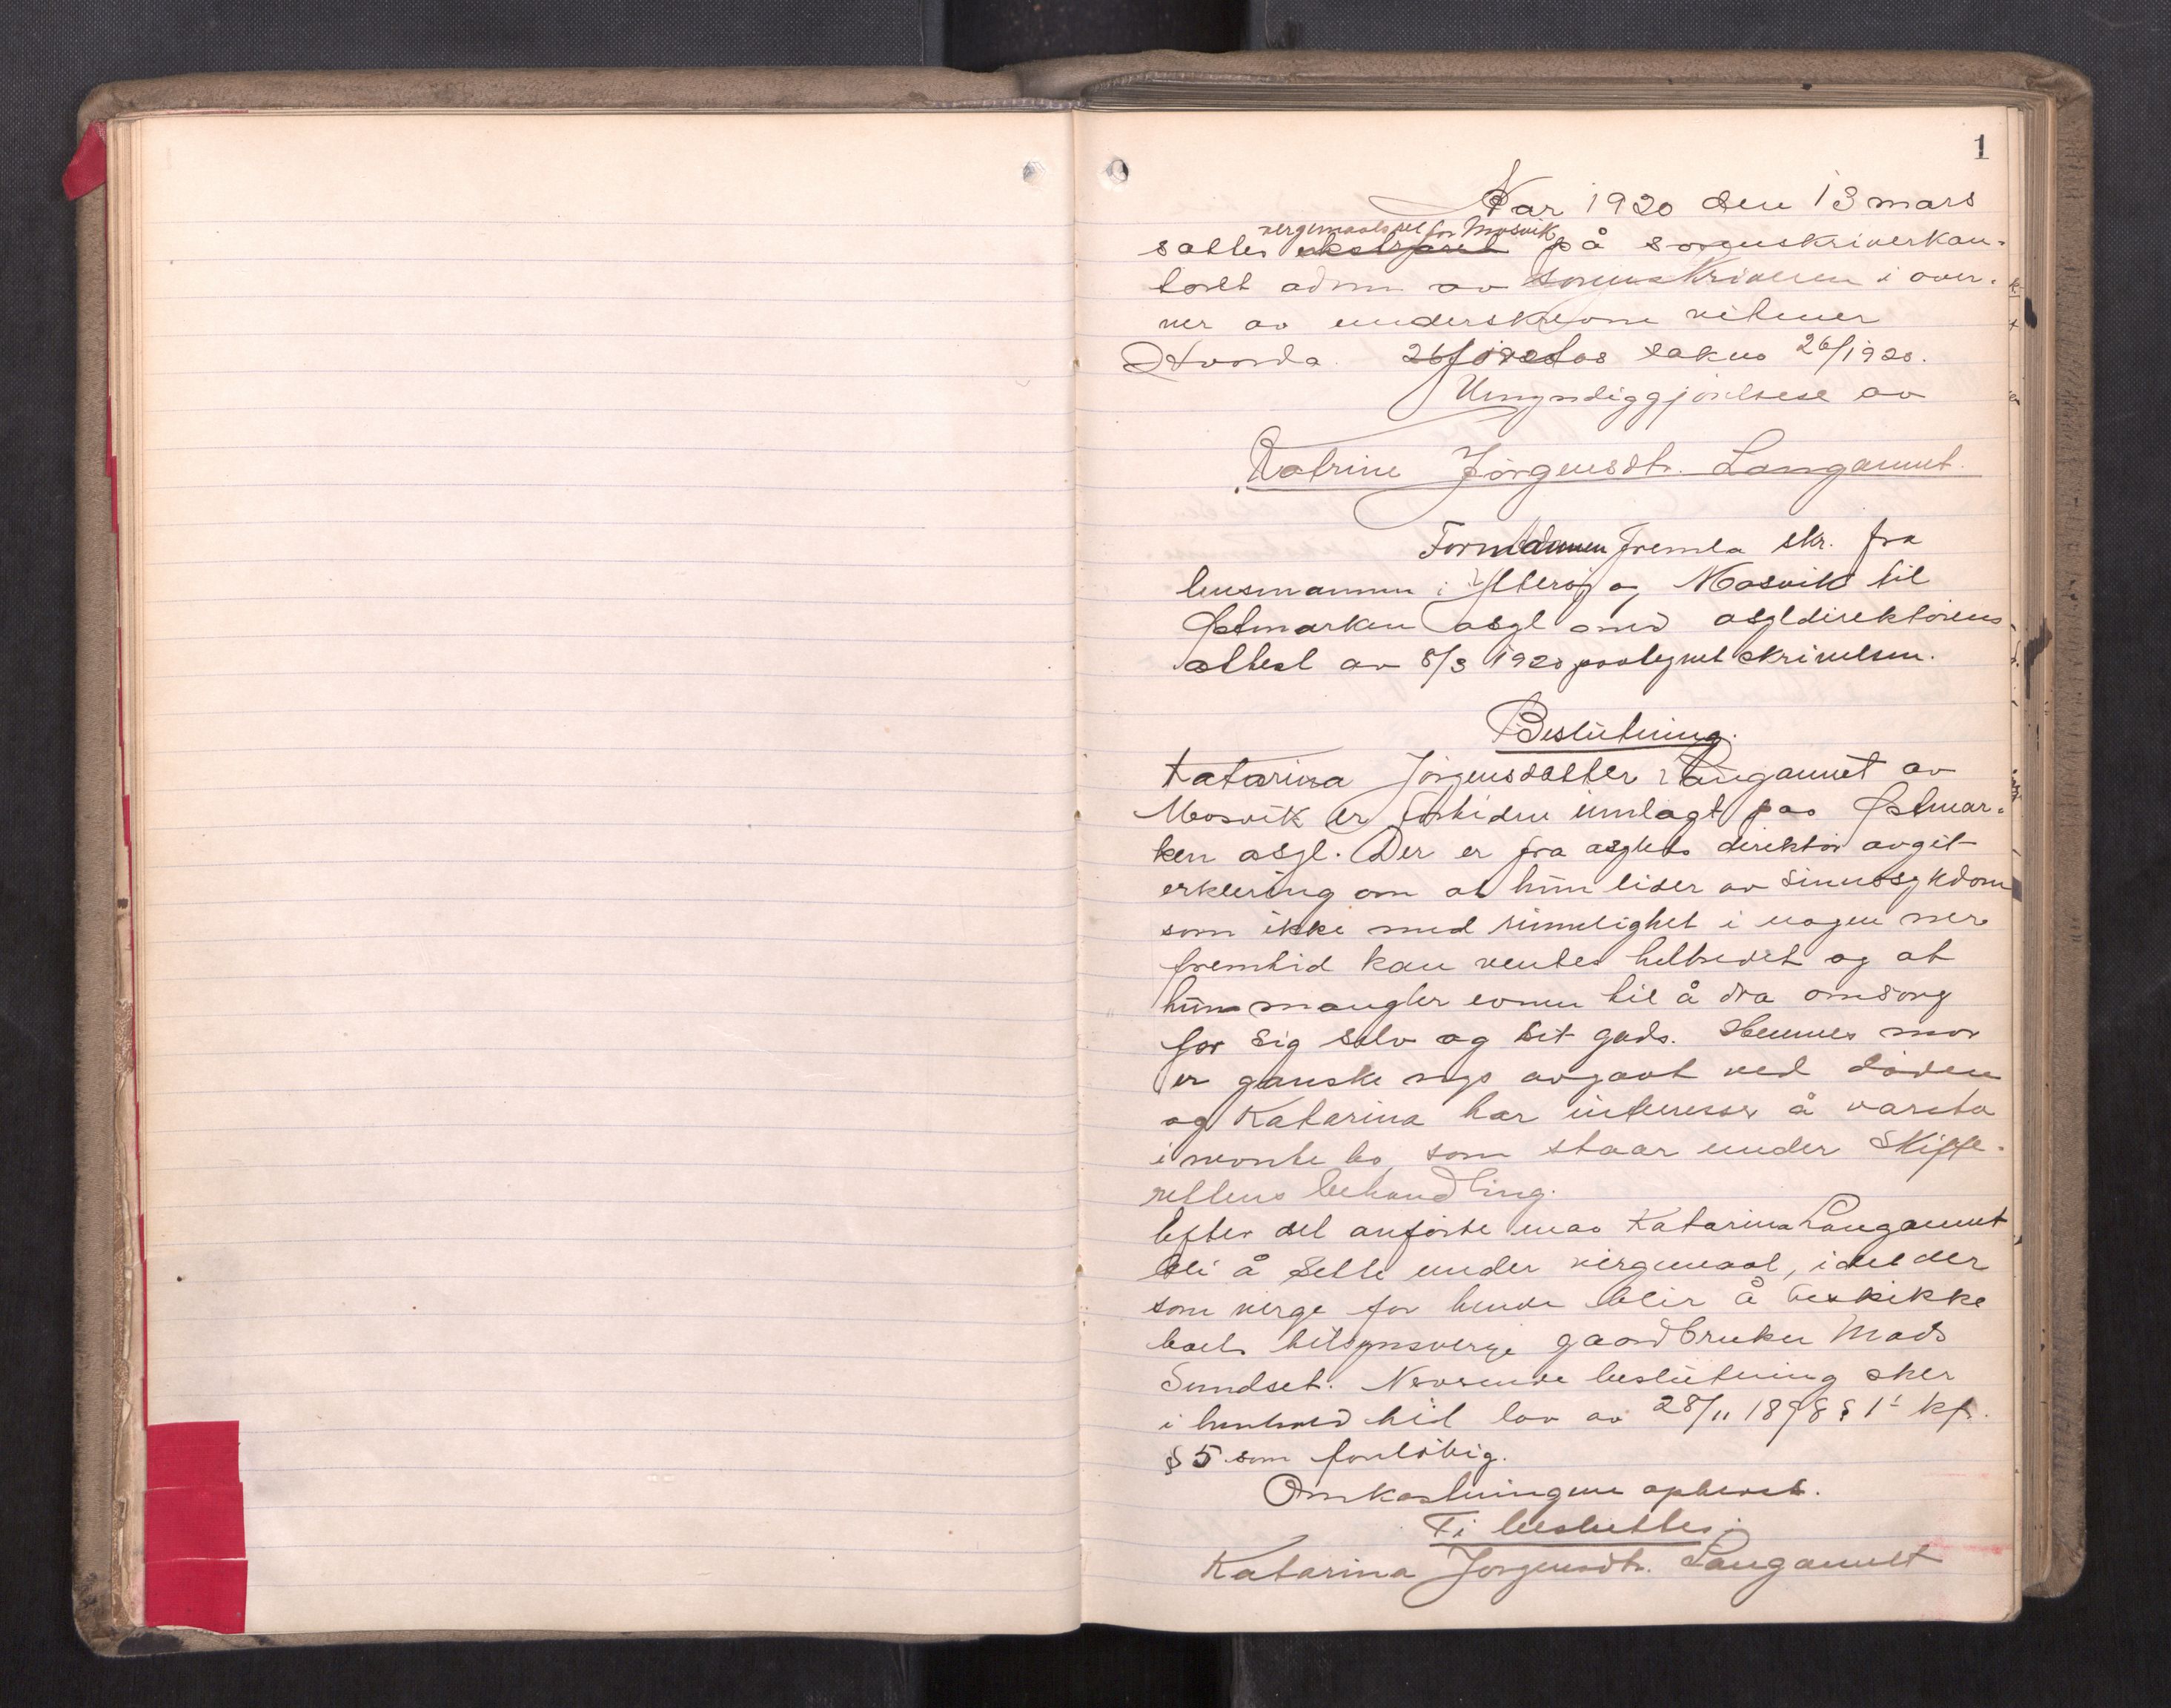 1
Aar 1920 den 13 mars
vergemaalsret for Mosvik
sattes ekstraret på sorenskriverkon-
toret adm av sorenskriveren i over-
vær av underskrevne vitner
Hvorda. sakno 26/1920.
Umyndiggjørelse av
Katrine Jörgensdtr. Langamnet.
Formannen fremla skr. fra
lensmannen i Ytterøy og Mosvik til
Østmarken asyl med asyldirektörens
attest av 8/3 1920 paategnet skrivelsen.
Beslutning.
Katarina Jörgensdatter Langamnet av
Mosvik er fortiden innlagt paa Østmar-
ken asyl. Der er fra asylets direktör avgit
erklæring om at hun lider av sinnssykdom
som ikke med rimelighet i nogen nær
fremtid kan ventes helbredet og at
hun mangler evnen til å dra omsorg
for sig selv og sit gods. Hennes mor
er ganske nys avgaat ved döden
og Katarina har interesser å vareta
i morens bo, som staar under Skifte-
rettens behandling.
Efter det anförte maa Katarina Langamnet
bli å sette under vergemaal, idet der
som verge for hende blir å beskikke
boets tilsynsverge gaardbruker Mads
Sundset. Nærværende beslutning sker
i henhold til lov av 28/11 1898 § 1 kfr.
§ 5 som forlöbig.
Omkostningene ophevet.
Ti besluttes:
Katarina Jorgensdtr. Langamnet